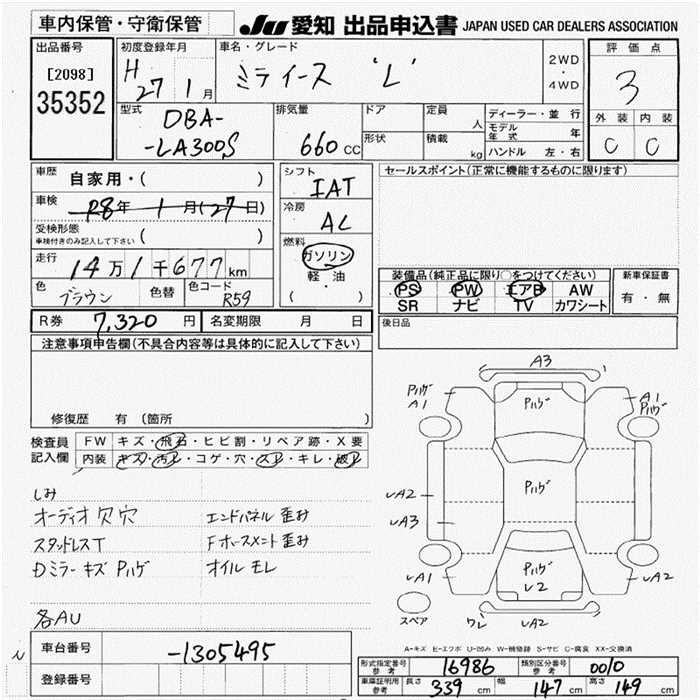 車内保管・守衛保管
JU 愛知 出品申込書 JAPAN USED CAR DEALERS ASSOCIATION
出品番号
[2098]
35352
初度登録年月
H 27 1月
車名・グレード
ミライース 'L'
2WD
・
4WD
評価点
3
外装 内装
C C
型式
DBA-
-LA300S
排気量
660 cc
ドア
形状
定員
人
積載
kg
ディーラー・並行
モデル年式 年
ハンドル 左・右
車歴
自家用・( )
車検
R8年 1月(27日)
受検形態
車検付きのみ記入して下さい ( )
走行
14万1千677km
色
ブラウン
色替
色コード
R59
シフト
IAT
冷房
AC
燃料
ガソリン
軽・油
( )
セールスポイント(正常に機能するものに限ります)
装備品(純正品に限り○をつけてください)
PS PW エアB AW
SR ナビ TV カワシート
新車保証書
有・無
R券 7,320 円 名変期限 月 日
後日品
注意事項申告欄(不具合内容等は具体的に記入して下さい)
修復歴 有(箇所
検査員
記入欄
FW キズ・飛石・ヒビ割・リペア跡・X要
内装 キズ・汚レ・コゲ・穴・スレ・キレ・破レ
しみ
オーディオ欠穴 エンドパネル歪み
スタッドレスT Fホースメント歪み
Dミラーキズ Pハゲ オイルモレ
各AU
A3
Pハゲ
A1
Pハゲ
A1
Pハゲ
Pハゲ
レA2
レA3
Pハゲ
レ2
レA1
レA2
スペア
ワレ
レA2
A-キズ E-エクボ U-凹み W-補修跡 S-サビ C-腐食 XX-交換済
車台番号
-1305495
登録番号
形式指定番号
参考
16986
類別区分番号
参考
0010
車庫証明用
参考
長さ 339 cm 幅 147 cm 高さ 149 cm